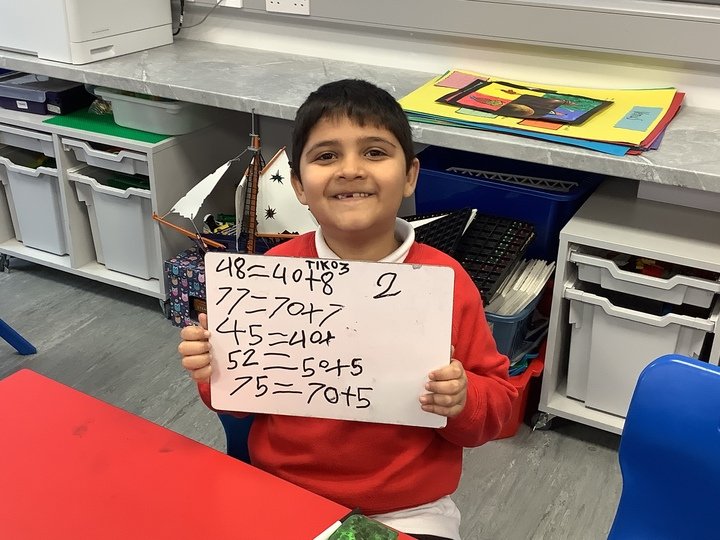 TIKO3
48=40+8 2
77=70+7
45=40+
52=50+5
75=70+5